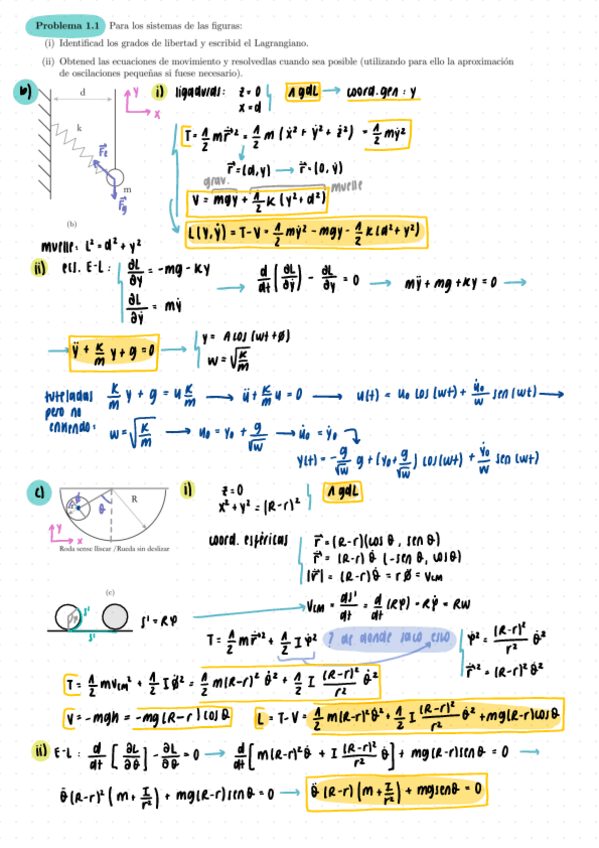 Problema 1.1 Para los sistemas de las figuras:
(i) Identificad los grados de libertad y escribid el Lagrangiano.
(ii) Obtened las ecuaciones de movimiento y resolvedlas cuando sea posible (utilizando para ello la aproximación
de oscilaciones pequeñas si fuese necesario).
b) d k Fe Fg m y x
i) ligaduras: z=0 x=d 1 gdL → coord. gen: y
T = 1/2 m ṙ² = 1/2 m (ẋ² + ẏ² + ż²) = 1/2 mẏ²
r⃗ = (d,y) → ṙ = (0, ẏ)
grav. muelle
V = mgy + 1/2 K (y² + d²)
(b)
L(y,ẏ) = T-V = 1/2 mẏ² - mgy - 1/2 K(d² + y²)
muelle: L² = d² + y²
ii) ecs. E-L: ∂L/∂y = -mg - Ky
∂L/∂ẏ = mẏ
→ d/dt (∂L/∂ẏ) - ∂L/∂y = 0 → mÿ + mg + Ky = 0 →
→ ÿ + K/m y + g = 0 → y = A cos (wt + ø)
w = √K/m
tuteladas pero no entiendo:
K/m y + g = u K/m → ü + K/m u = 0 → u(t) = u₀ cos (wt) + u̇₀/w sen (wt) →
w = √K/m → u₀ = y₀ + g/√w → u̇₀ = ẏ₀
y(t) = - g/√w g + (y₀ + g/√w) cos(wt) + ẏ₀/w sen (wt)
c) R θ y x
i) z=0
x² + y² = (R-r)² 1 gdL
Roda sense lliscar /Rueda sin deslizar
coord. esféricas r⃗ = (R-r)(cos θ, sen θ)
ṙ = (R-r) θ̇ (-sen θ, cos θ)
|ṙ| = (R-r) θ̇ = r ø̇ = VCM
(c)
s' s' s' = Rφ → VCM = ds'/dt = d/dt (Rφ) = Rφ̇ = RW
T = 1/2 m ṙ² + 1/2 I φ̇² ? de donde saco esto
φ̇² = (R-r)²/r² θ̇²
ṙ² = (R-r)² θ̇²
T = 1/2 m VCM² + 1/2 I ø̇² = 1/2 m (R-r)² θ̇² + 1/2 I (R-r)²/r² θ̇²
V = -mgh = -mg(R-r) cos θ L = T-V = 1/2 m (R-r)² θ̇² + 1/2 I (R-r)²/r² θ̇² + mg(R-r)cos θ
ii) E-L: d/dt [∂L/∂θ̇] - ∂L/∂θ = 0 → d/dt [m(R-r)² θ̇ + I (R-r)²/r² θ̇] + mg(R-r) sen θ = 0 →
θ̈ (R-r)² (m + I/r²) + mg(R-r) sen θ = 0 → θ̈ (R-r) (m + I/r²) + mg sen θ = 0